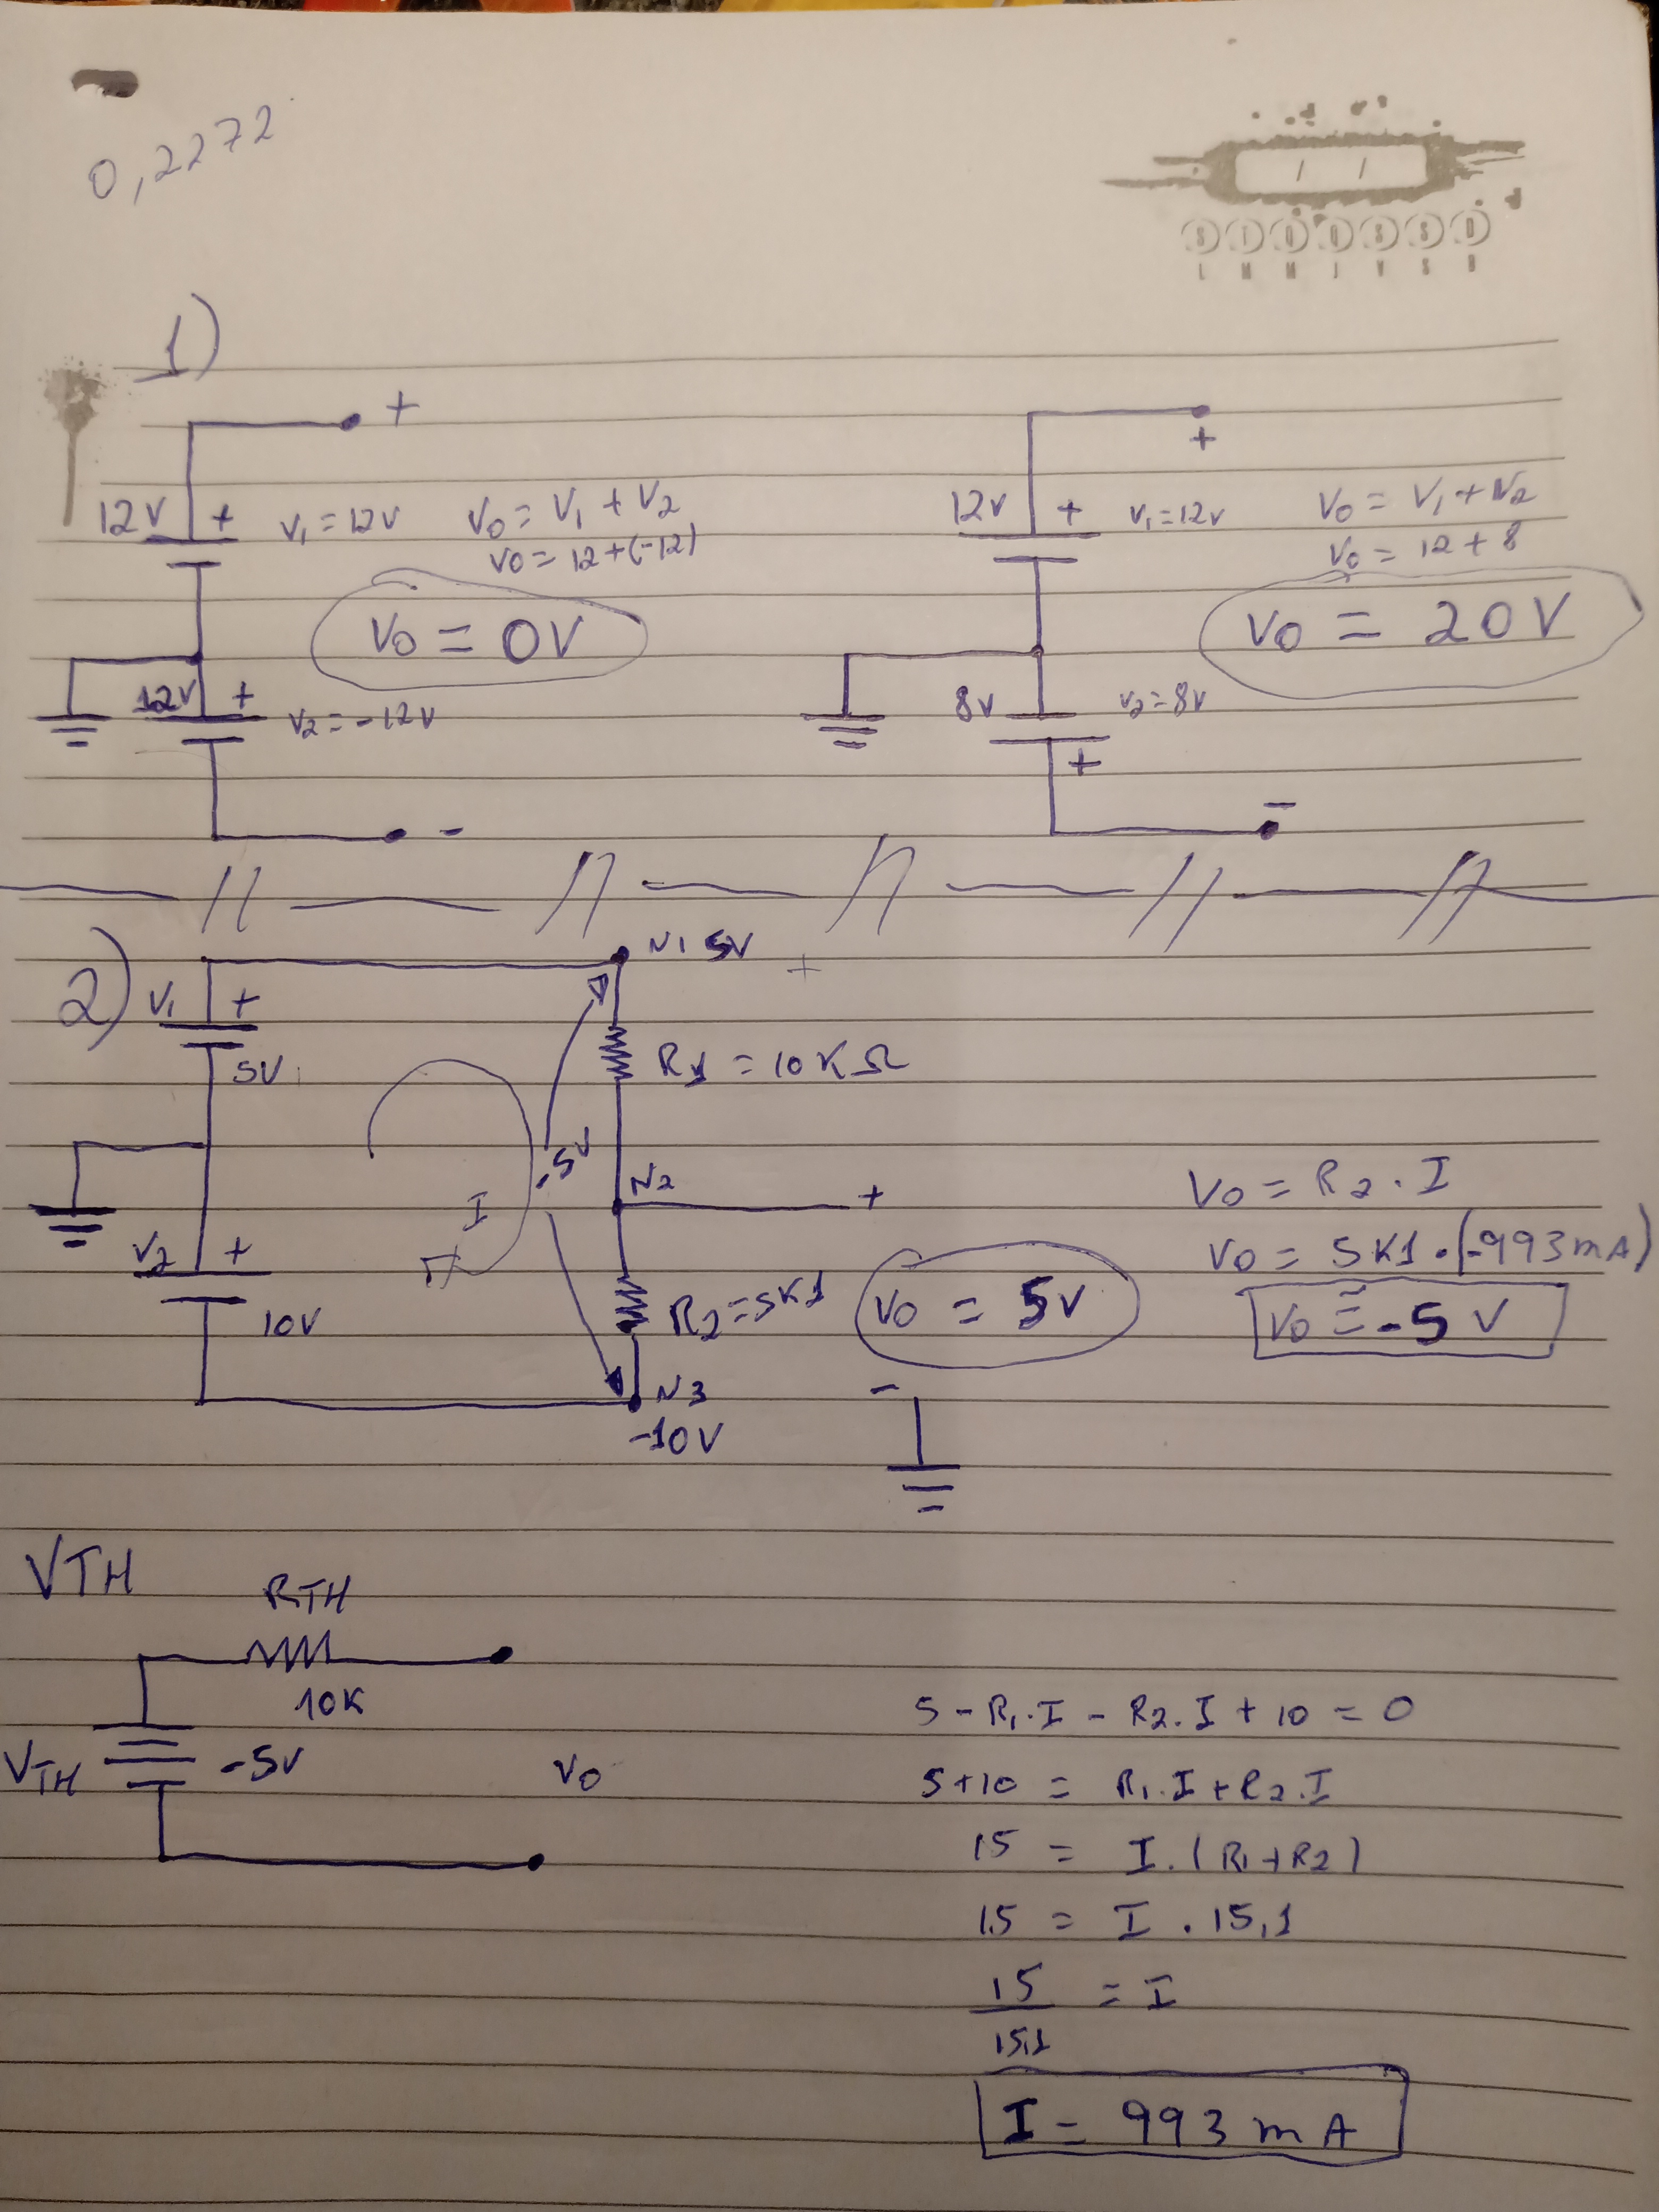 0,2272
L M M J V S D
1)
+
+
12V + V₁ = 12V V₀ = V₁ + V₂
V₀ = 12 + (-12)
V₀ = 0V
12V + V₂ = -12V
-
12V + V₁ = 12V V₀ = V₁ + V₂
V₀ = 12 + 8
V₀ = 20V
8V V₂ = 8V
+
-
2)
V₁ +
5V
N1 5V +
R1 = 10KΩ
-5V
I
N2 +
V2 +
10V
R2 = 5K1
V₀ = 5V
N3
-10V
-
V₀ = R2 . I
V₀ = 5K1 . (-993mA)
V₀ ≅ -5V
VTH
RTH
10K
VTH -5V V₀
5 - R₁.I - R2.I + 10 = 0
5+10 = R₁.I + R2.I
15 = I.(R1+R2)
15 = I . 15,1
15/15,1 = I
I = 993 mA